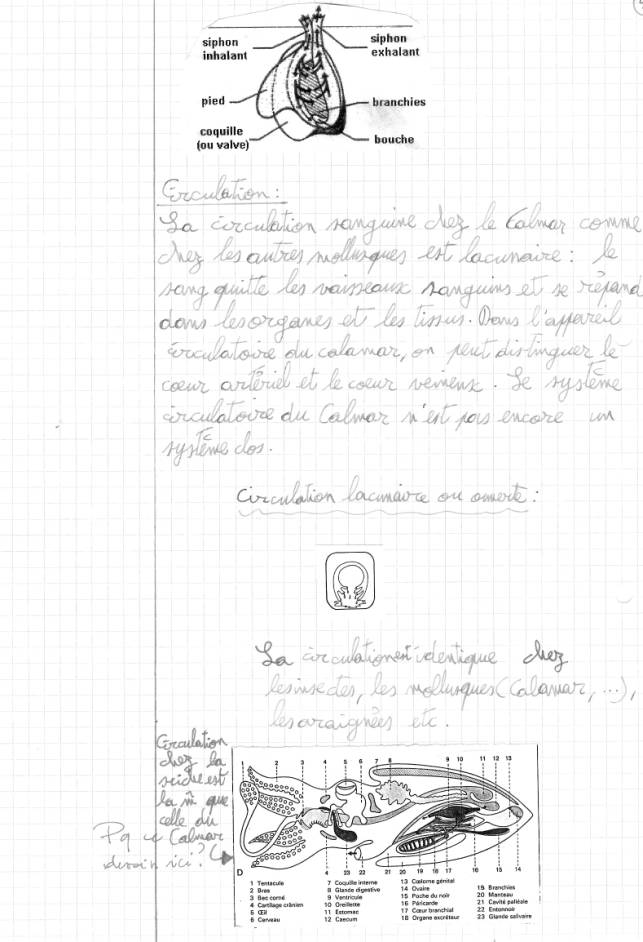 siphon inhalant
siphon exhalant
pied
branchies
coquille (ou valve)
bouche
Circulation :
La circulation sanguine chez le Calmar comme
chez les autres mollusques est lacunaire : le
sang quitte les vaisseaux sanguins et se répand
dans les organes et les tissus. Dans l'appareil
circulatoire du calamar, on peut distinguer le
coeur artériel et le coeur veineux. Le système
circulatoire du Calmar n'est pas encore un
système clos.
Circulation lacunaire ou ouverte :
La circulation est identique chez
les insectes, les mollusques (Calamar, ...),
les araignées etc.
Circulation
chez la
seiche est
la m̂ que
celle du
Calmar
Pq ce
dessin ici ?
1 2 3 4 5 6 7 8 9 10 11 12 13
4 23 22 21 20 19 18 17 16 15 14
D
1 Tentacule
2 Bras
3 Bec corné
4 Cartilage crânien
5 Œil
6 Cerveau
7 Coquille interne
8 Glande digestive
9 Ventricule
10 Oreillette
11 Estomac
12 Caecum
13 Cœlome génital
14 Ovaire
15 Poche du noir
16 Péricarde
17 Cœur branchial
18 Organe excréteur
19 Branchies
20 Manteau
21 Cavité palléale
22 Entonnoir
23 Glande salivaire